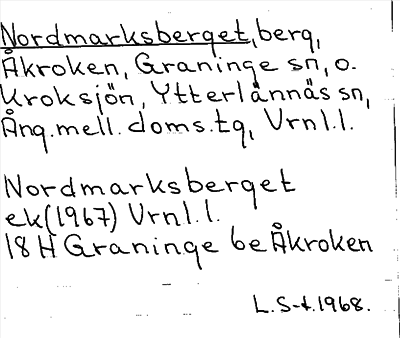 Nordmarksberget, berg,
Åkroken, Graninge sn, o.
Kroksjön, Ytterlännäs sn,
Ång. mell. doms. tg, Vrnl. l.
Nordmarksberget
ek(1967) Vrnl. l.
18 H Graninge 6e Åkroken
L. S-t. 1968.